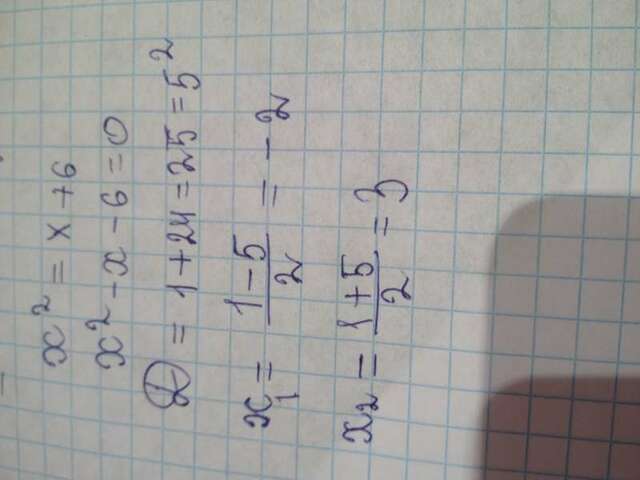 x² = x + 6
x² - x - 6 = 0
D = 1 + 24 = 25 = 5²
x₁ = (1 - 5)/2 = -2
x₂ = (1 + 5)/2 = 3